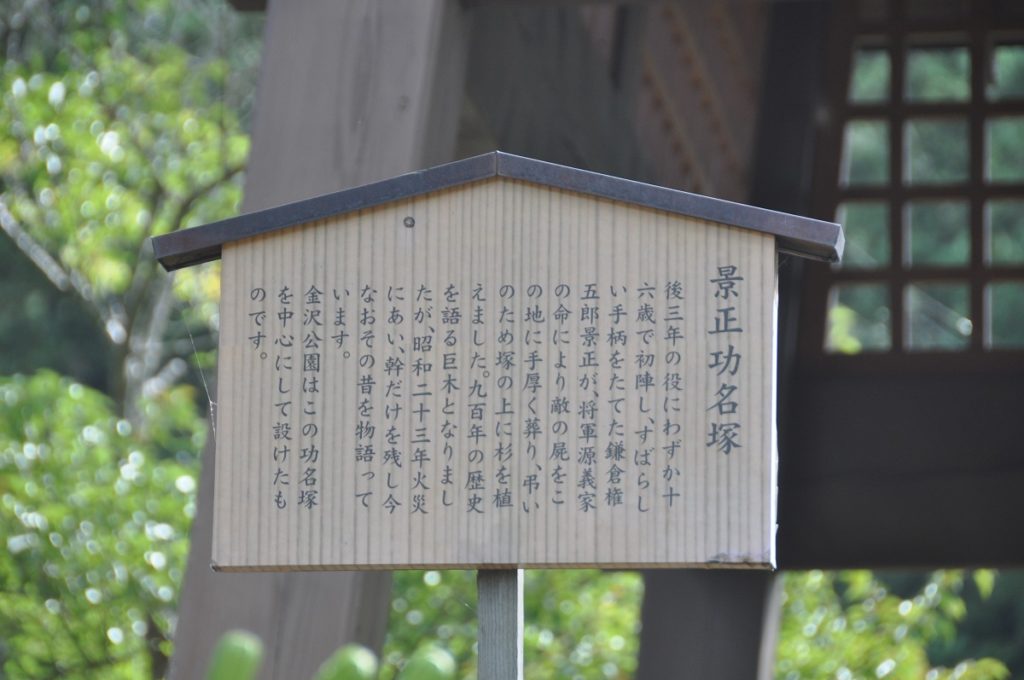 景正功名塚
後三年の役にわずか十
六歳で初陣し、すばらし
い手柄をたてた鎌倉権
五郎景正が、将軍源義家
の命により敵の屍をこ
の地に手厚く葬り、弔い
のため塚の上に杉を植
えました。九百年の歴史
を語る巨木となりまし
たが、昭和二十三年火災
にあい、幹だけを残し今
なおその昔を物語って
います。
金沢公園はこの功名塚
を中心にして設けたも
のです。